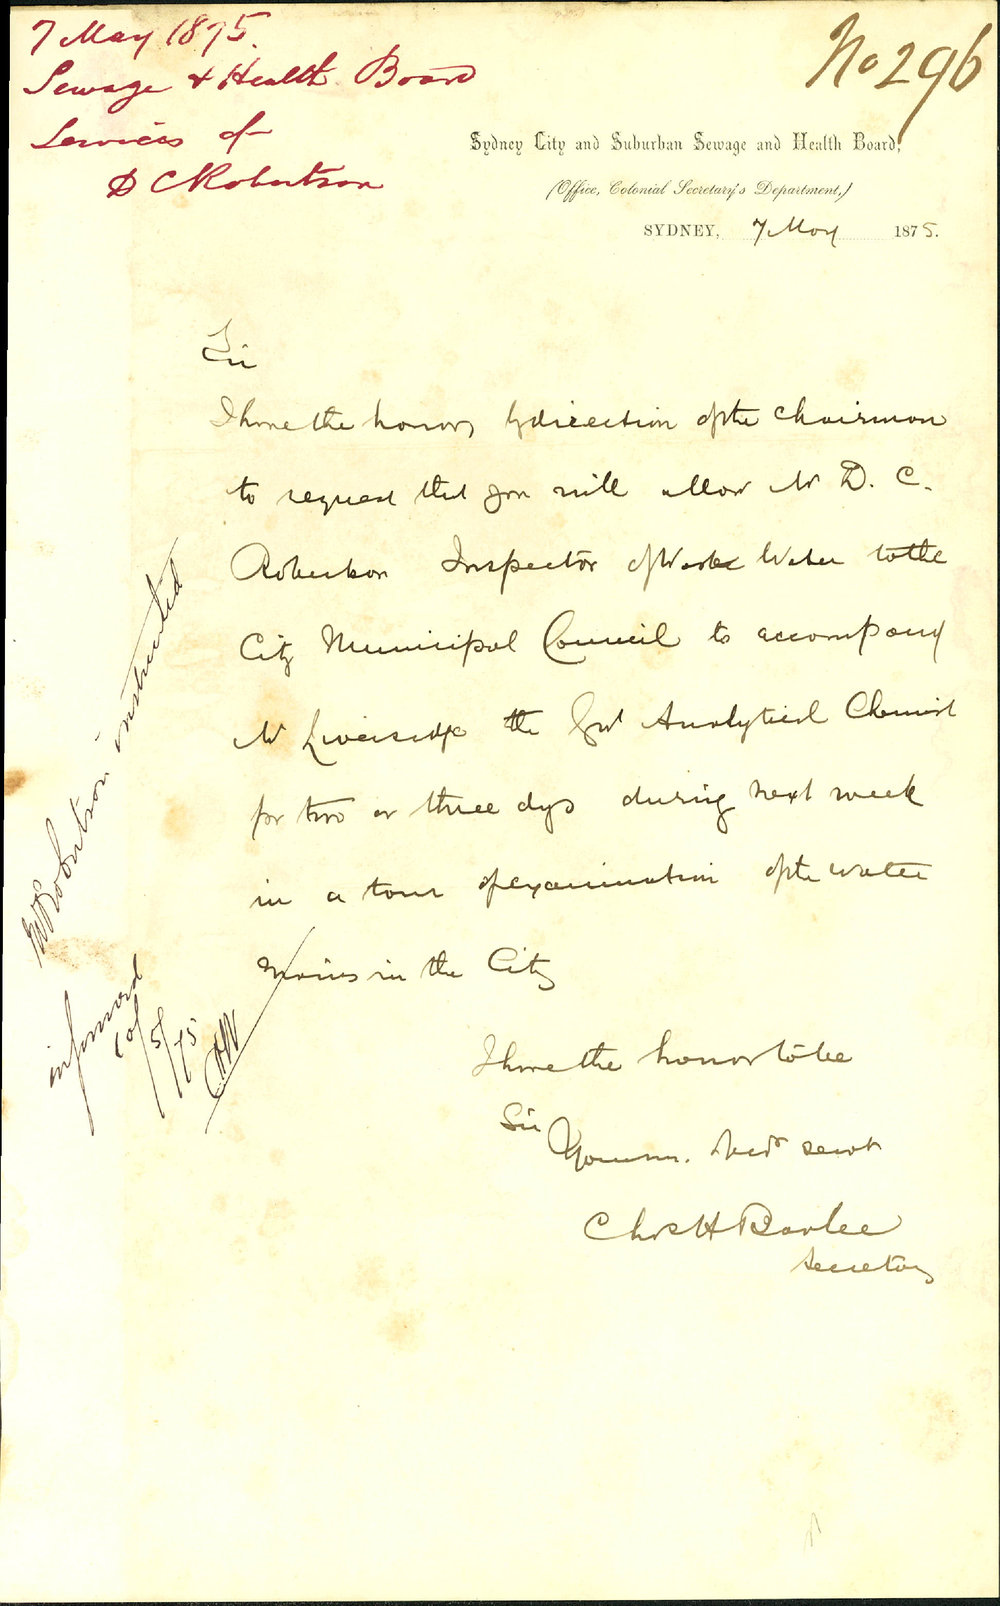 7 May 1875.
Sewage & Health Board
Services of
D C Robertson
No 296
Sydney City and Suburban Sewage and Health Board,
(Office, Colonial Secretary's Department,)
SYDNEY, 7 May 1875.
Sir
I have the honor, by direction of the Chairman
to request that you will allow Mr D. C.
Robertson Inspector of Water to the
City Municipal Council to accompany
Mr Liversidge the Govt Analytical Chemist
for two or three days during next week
in a tour of examination of the water
Mains in the City
I have the honor to be
Sir
Your obedt servt
Chrs H Barlee
Secretary
Mr Robertson instructed
informed
10/5/75
CHW